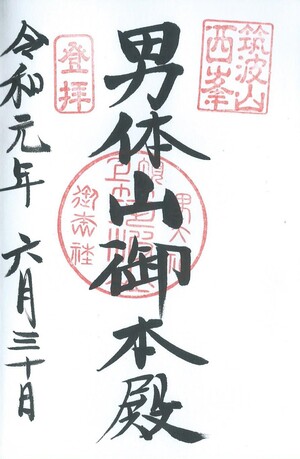 筑波山
西峯
男体山御本殿
登拝
令和元年 六月三十日